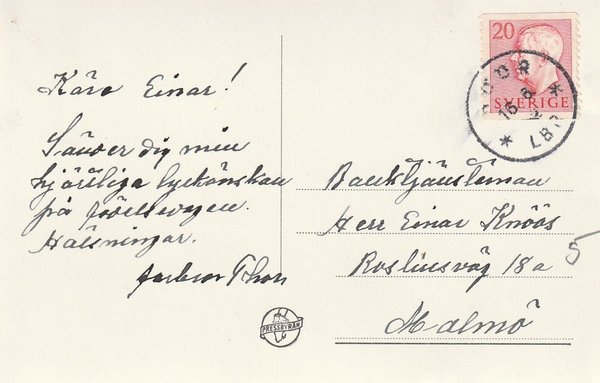 Kära Einar!
Sänder dig min
hjärtliga lyckönskan
på födelsedagen.
Hälsningar.
Thor
PRESSBYRÅN
20
SVERIGE
15.6
LBR
Banktjänsteman
Herr Einar Knöös
Rosliusväg 18a
5
Malmö